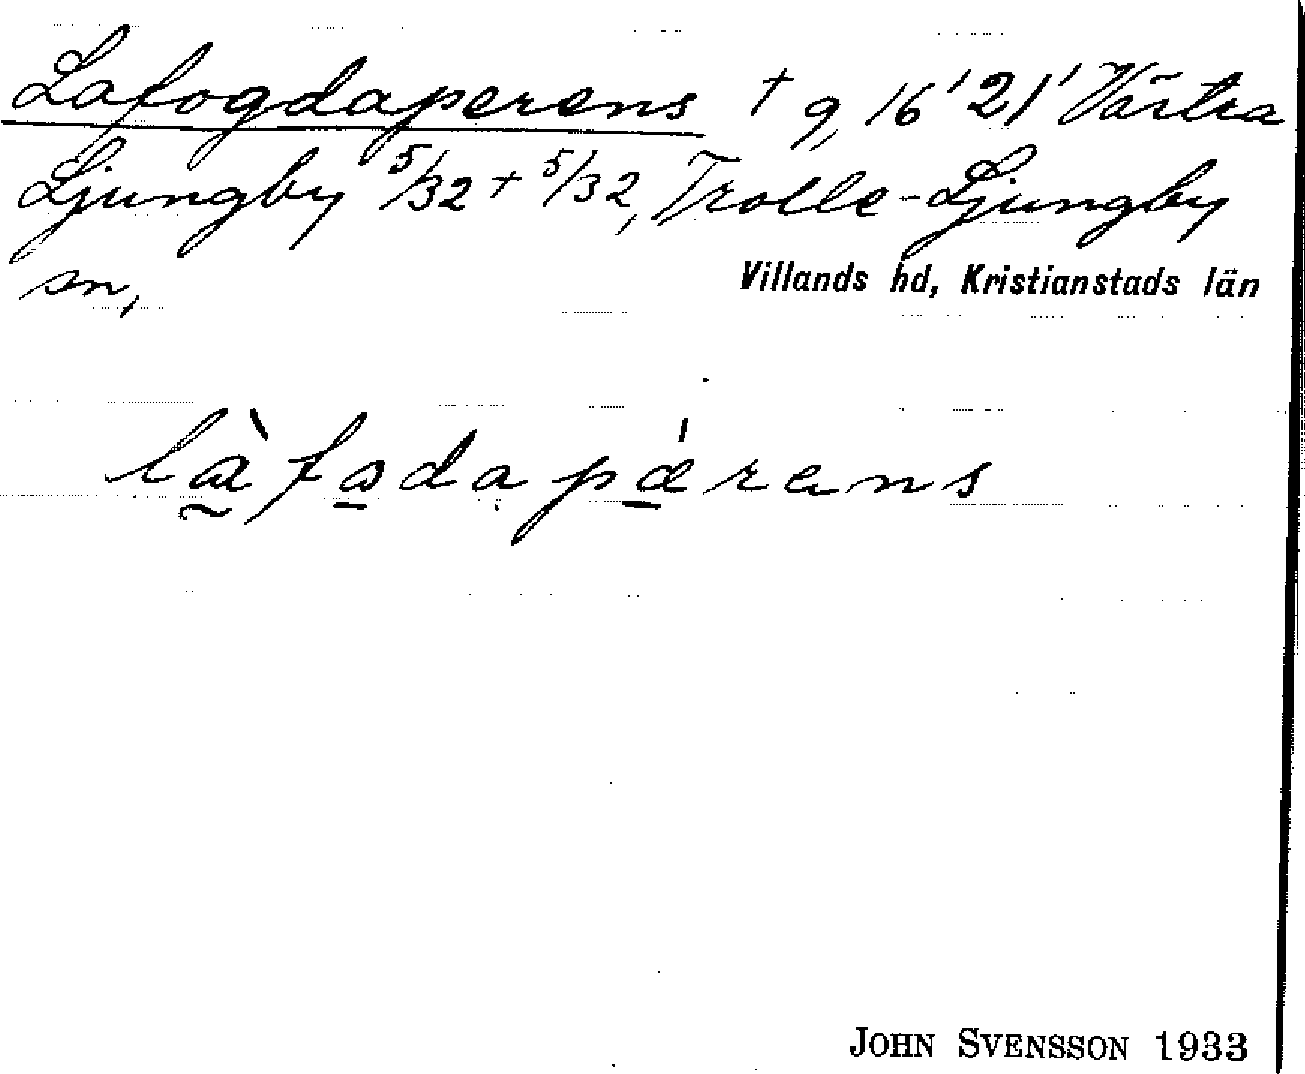 Lafogdaperens + g, 16' 21' Västra
Ljungby 5/32 + 5/32, Trolle-Ljungby
sn,
Villands hd, Kristianstads län
làfodapárens
JOHN SVENSSON 1933